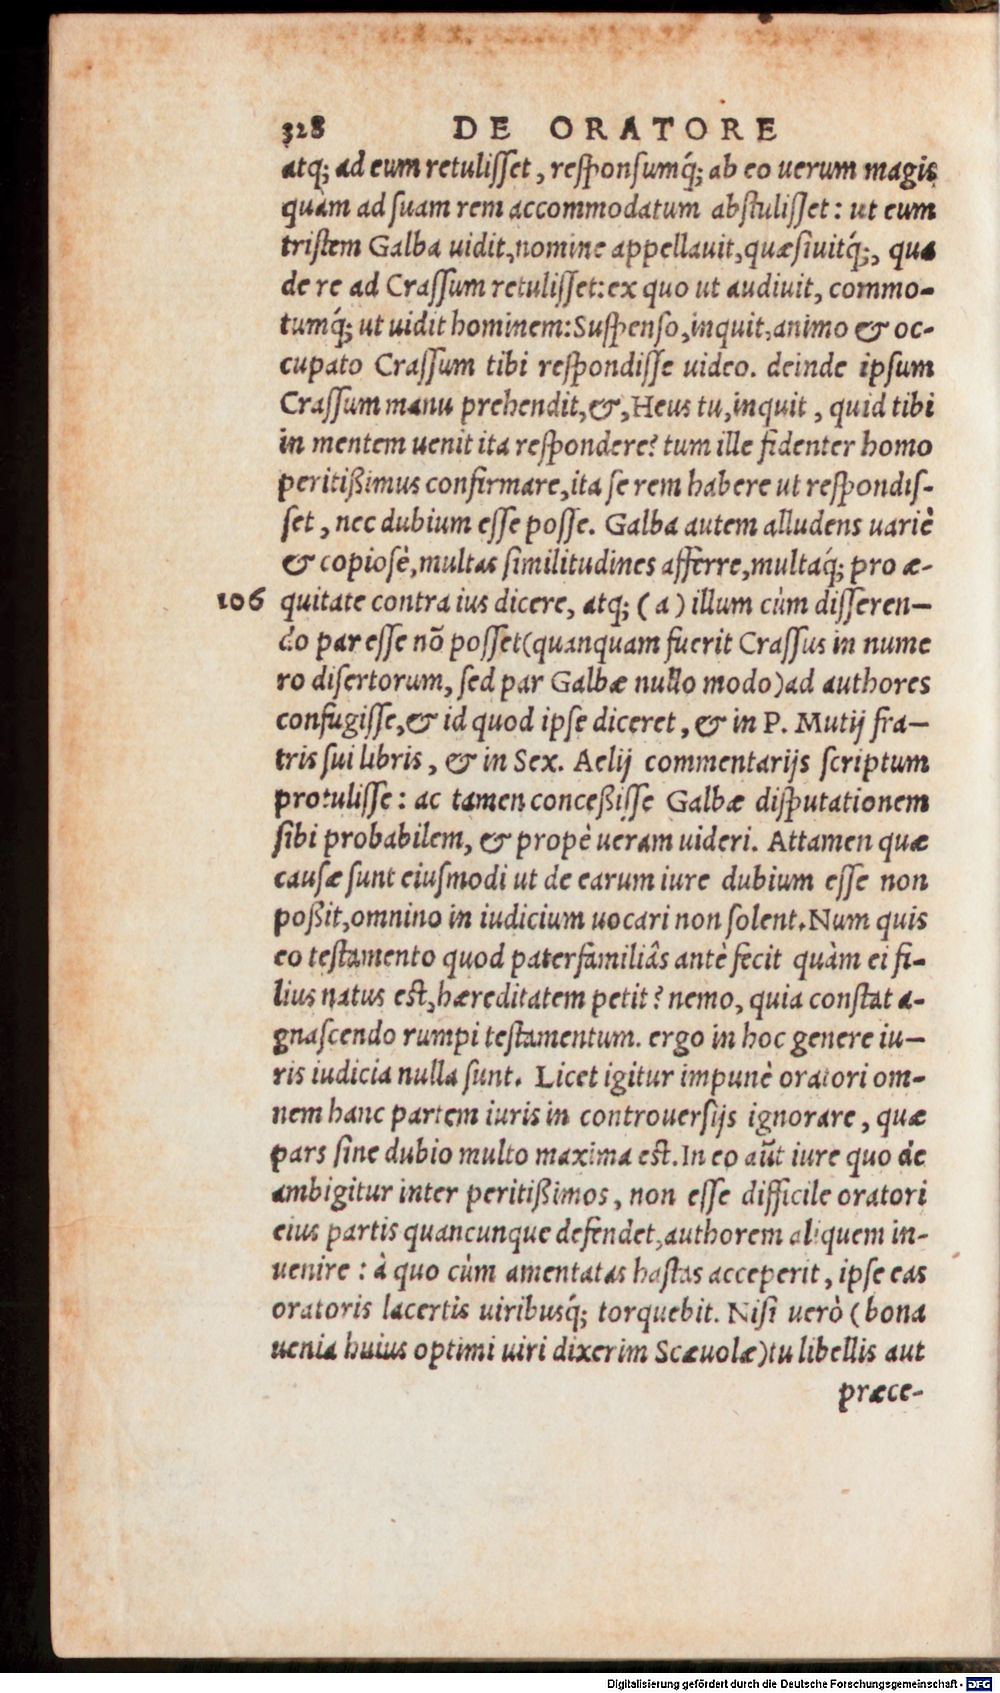 328 DE ORATORE
atq; ad eum retulisset, responsumq́; ab eo uerum magis
quàm ad suam rem accommodatum abstulisset: ut eum
tristem Galba uidit, nomine appellauit, quæsiuitq́;, qua
de re ad Crassum retulisset: ex quo ut audiuit, commo-
tumq́; ut uidit hominem: Suspenso, inquit, animo & oc-
cupato Crassum tibi respondisse uideo. deinde ipsum
Crassum manu prehendit, &, Heus tu, inquit, quid tibi
in mentem uenit ita respondere? tum ille fidenter homo
peritißimus confirmare, ita se rem habere ut respondis-
set, nec dubium esse posse. Galba autem alludens uariè
& copiosè, multas similitudines afferre, multaq́; pro æ-
106 quitate contra ius dicere, atq; (a) illum cùm disseren-
do par esse nõ posset (quanquam fuerit Crassus in nume
ro disertorum, sed par Galbæ nullo modo) ad authores
confugisse, & id quod ipse diceret, & in P. Mutij fra-
tris sui libris, & in Sex. Aelij commentarijs scriptum
protulisse: ac tamen conceßisse Galbæ disputationem
sibi probabilem, & propè ueram uideri. Attamen quæ
causæ sunt eiusmodi ut de earum iure dubium esse non
poßit, omnino in iudicium uocari non solent. Num quis
eo testamento quod paterfamiliâs antè fecit quàm ei fi-
lius natus est, hæreditatem petit? nemo, quia constat a-
gnascendo rumpi testamentum. ergo in hoc genere iu-
ris iudicia nulla sunt. Licet igitur impunè oratori om-
nem hanc partem iuris in controuersijs ignorare, quæ
pars sine dubio multo maxima est. In eo aũt iure quo de
ambigitur inter peritißimos, non esse difficile oratori
eius partis quancunque defendet, authorem aliquem in-
uenire: à quo cùm amentatas hastas acceperit, ipse eas
oratoris lacertis uiribusq́; torquebit. Nisi uerò (bona
uenia huius optimi uiri dixerim Scæuolæ) tu libellis aut
præce-
Digitalisierung gefördert durch die Deutsche Forschungsgemeinschaft - DFG